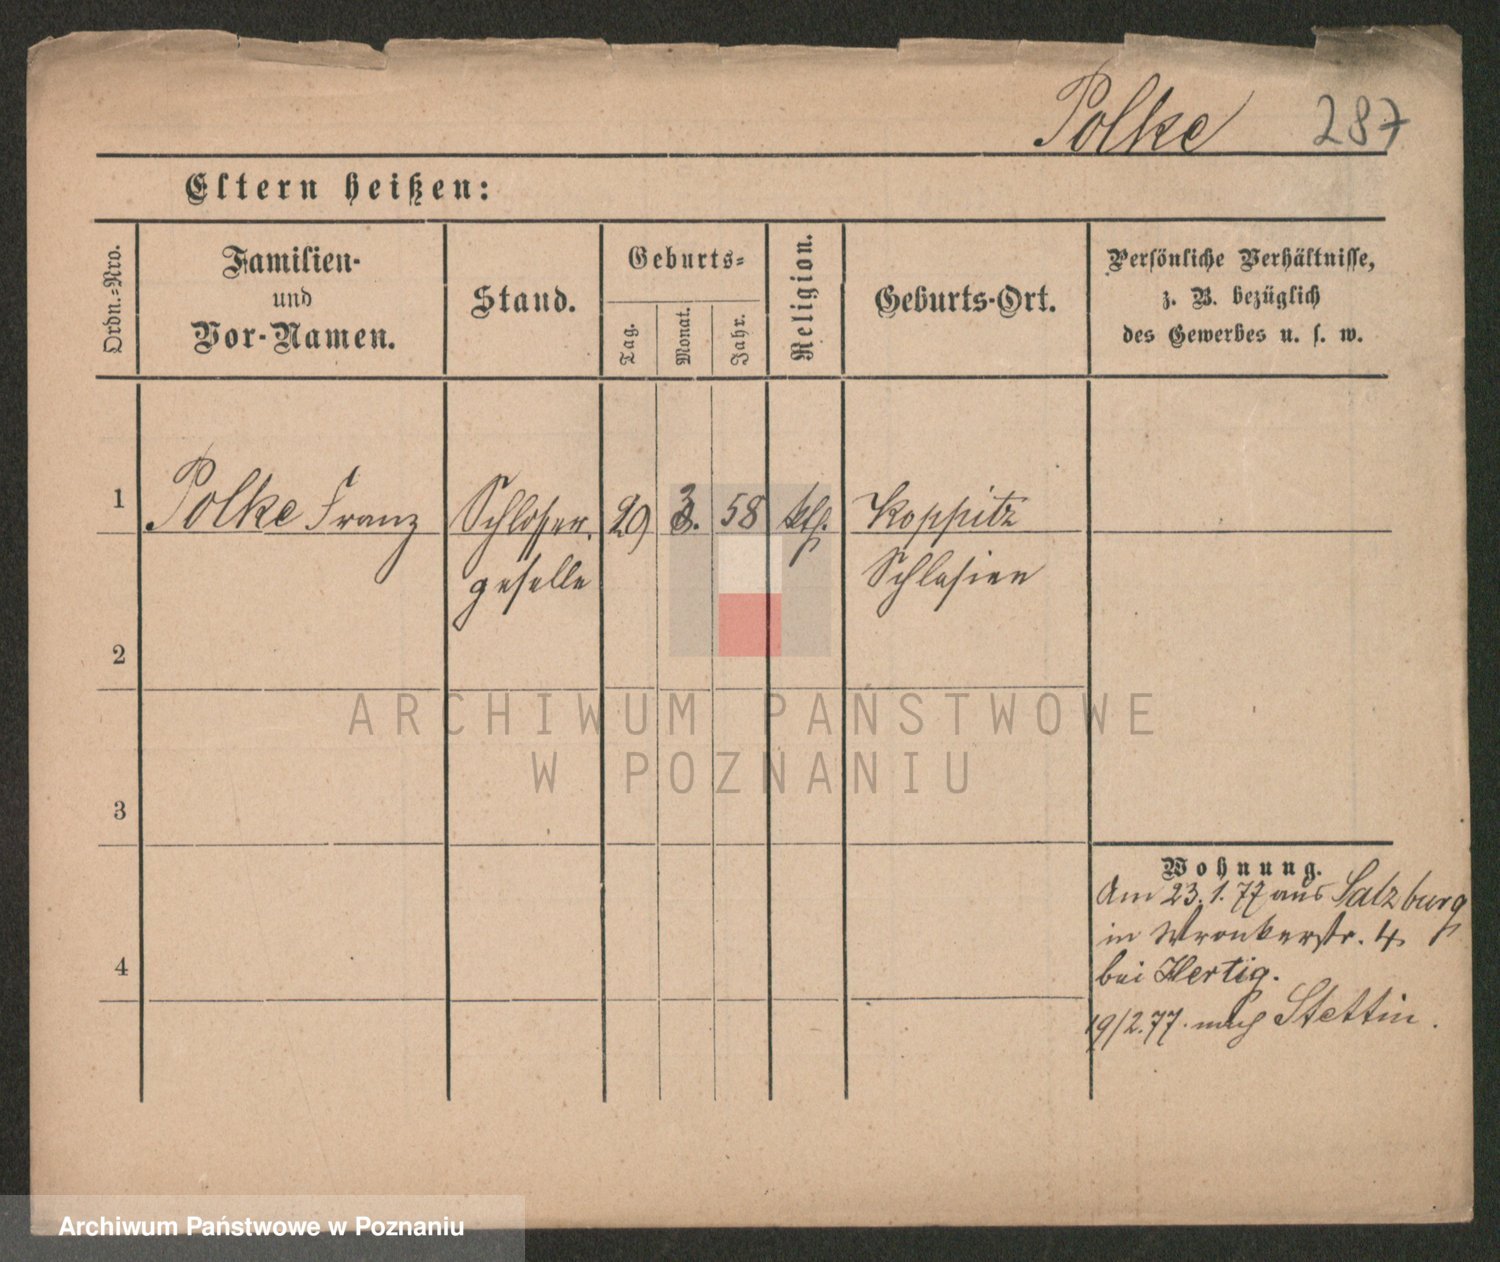 Polke 287
Eltern heißen:
Ordn.-Nro.
Familien-
und
Vor-Namen.
Stand.
Geburts-
Tag.
Monat.
Jahr.
Religion.
Geburts-Ort.
Persönliche Verhältnisse,
z. B. bezüglich
des Gewerbes u. s. w.
1 Polke Franz Schlosser- 29 3. 58 kth. Koppitz
geselle Schlesien
2
3
4
Wohnung.
Am 23.1.77 aus Salzburg
in Wronkerstr. 4
bei Hertig.
19/2.77. nach Stettin.
ARCHIWUM PAŃSTWOWE
W POZNANIU
Archiwum Państwowe w Poznaniu